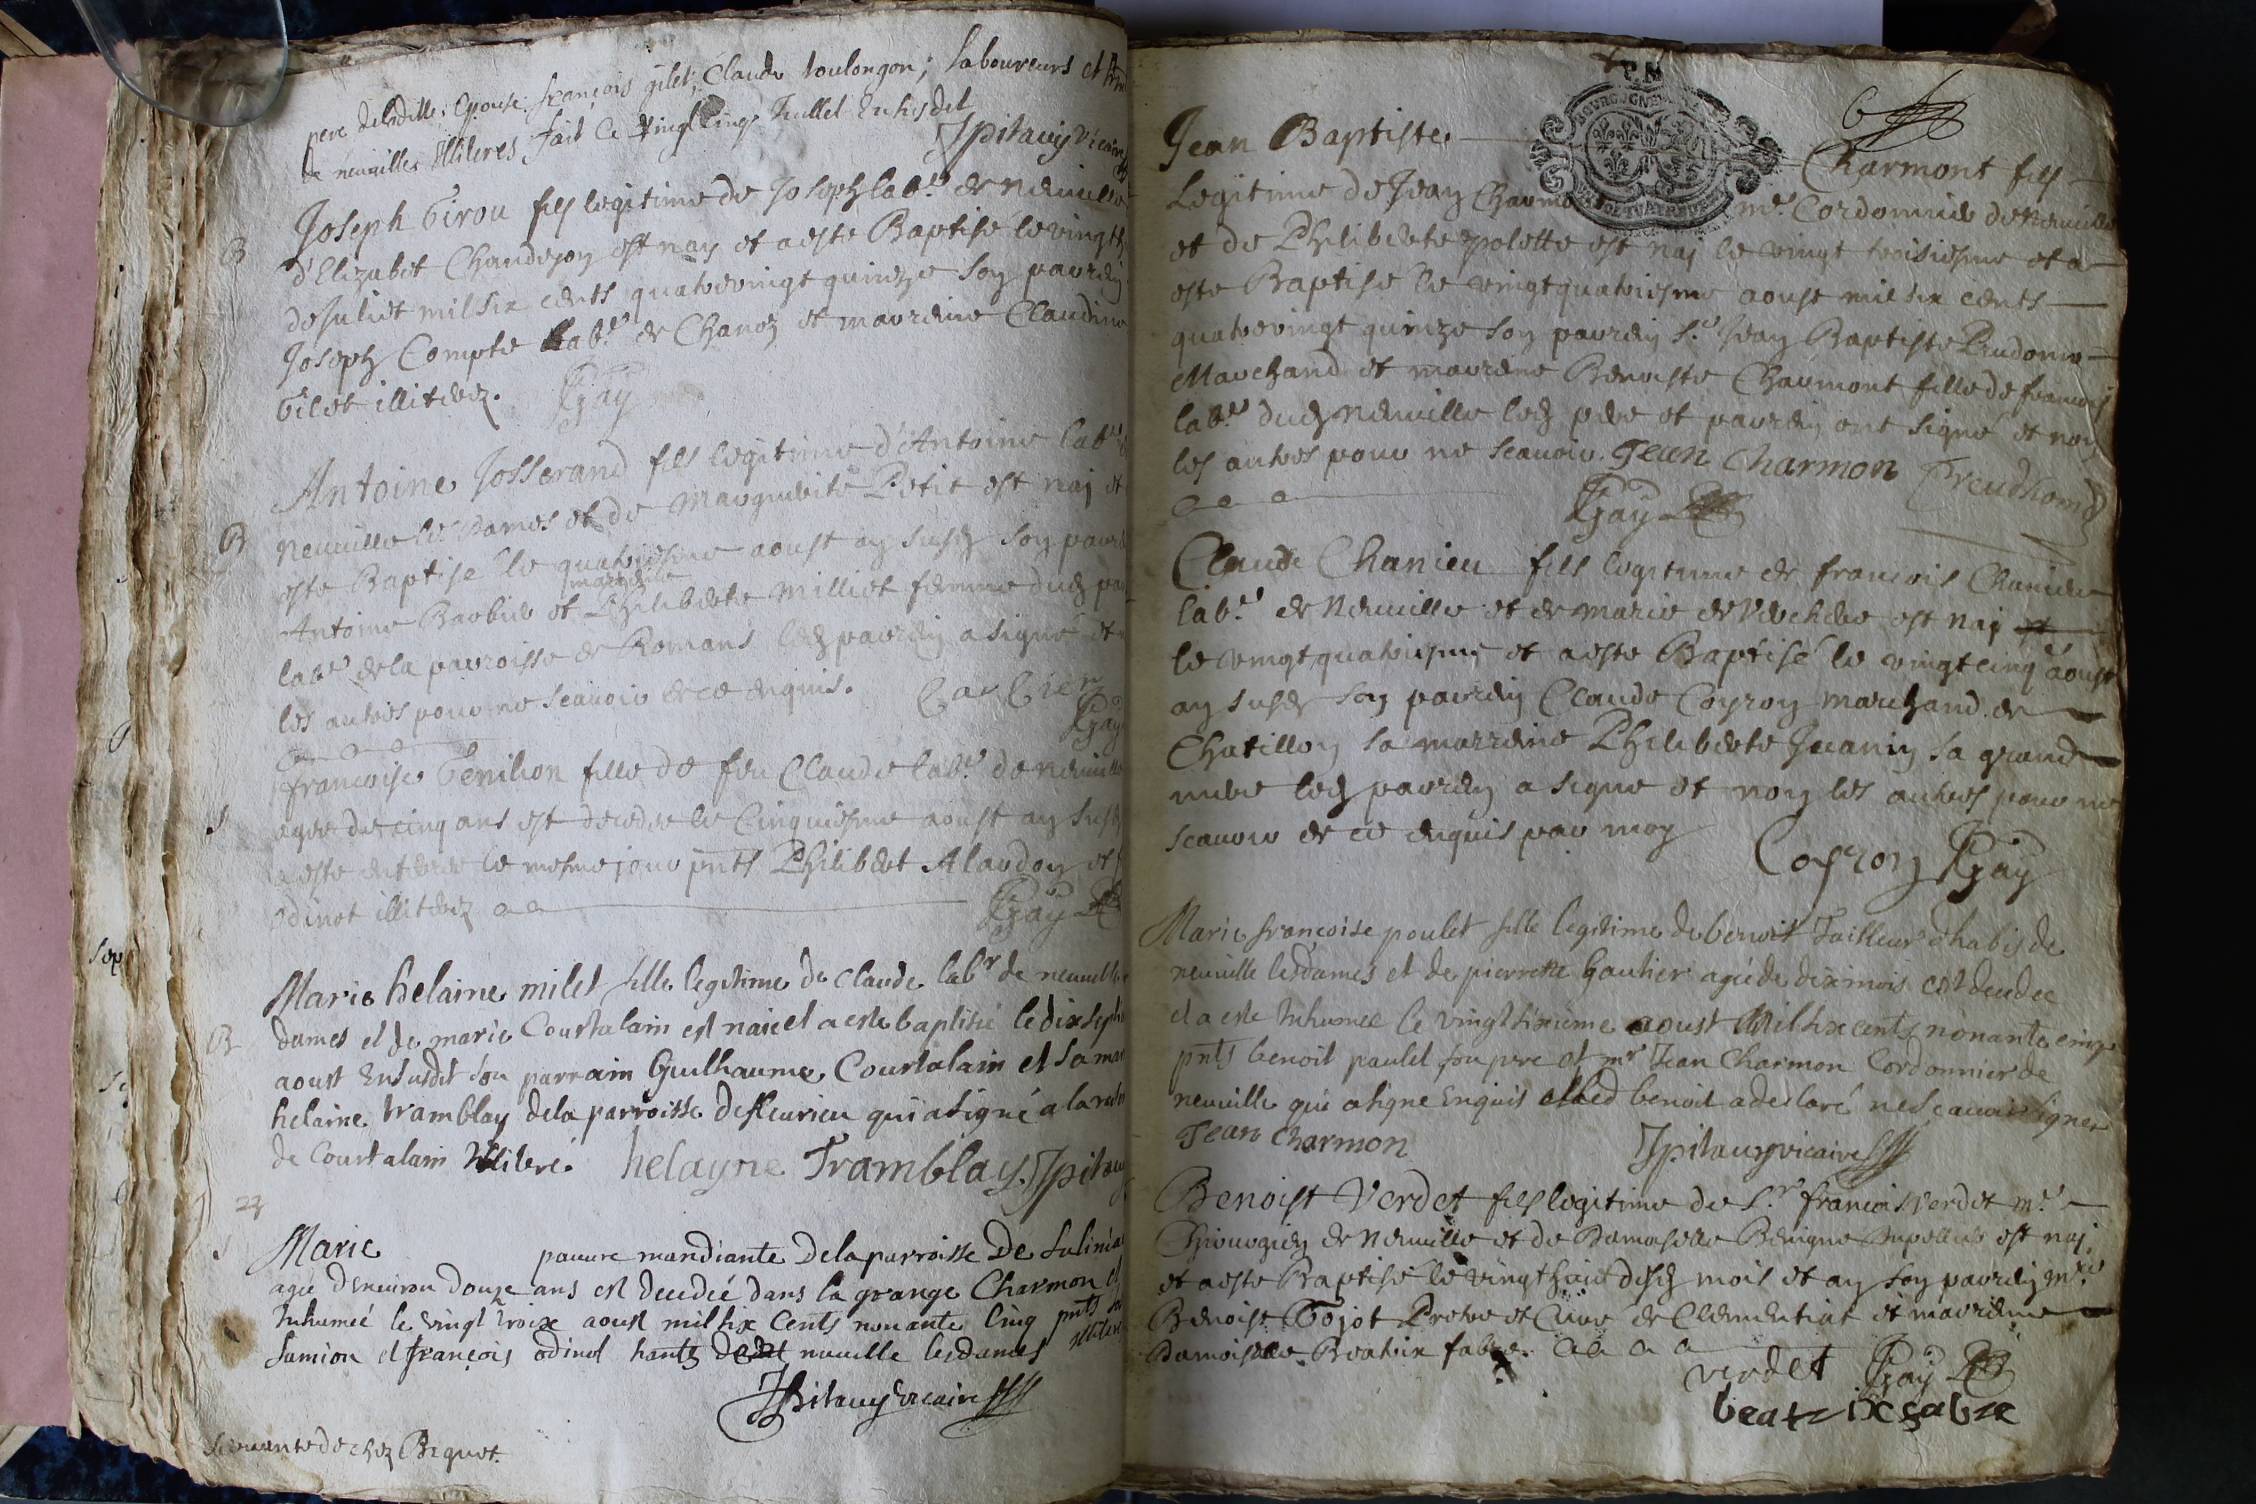 pere deladitte Epouse françois gilet, Claude toulongon; laboureurs et
de neuville Illiteres fait ce vingt cinq Juillet En susdit
Jpitauy vicaire
Joseph Girou fils legitime de Joseph lab.r de neuville
B
d'Elizabet Chandejon est nay et a este Baptisé le vingt
de Juliet mil six cents quatrevingt quinze son parrein
Joseph Compte lab.r de Chanoz et marreine Claudine
Gilet illiterez. Gay
Antoine Josserand fils legitime d'Antoine lab.r
B
Neuville les Dames et de Marguerite Petit est naj et
este Baptise le quatriesme aoust an susd son parrein
marreine
Antoine Barbier et Philiberte Milliet femme dud
lab.r de la parroisse de Romans led parrein a signé et
les autres pour ne scavoir de ce enquis. Barbier
Gay
francoise Genilion fille de feu Claude lab.r de neuville
S
agee de cinq ans est decedee le Cinquiesme aoust an susd
a este enterree le mesme jour pnts Philibert Alardon et
odinot illiterez
Gay
Marie helaine milet fille legitime de Claude lab.r de neuville
B
dames et de marie Courtalain est naie et a este baptisie le dix sept
aoust En susdit son parrain Guilhaume Courtalain et sa mar
helaine tramblay de la parroisse de fleurieu qui a signé a la
de Courtalain Illiteré. helayne Tramblay. Jpitauy
23
S
Marie pauvre mandiante De la parroisse De Sulinia
agee D'environ Douze ans est decedée dans la grange Charmon et
Inhumée le vingt troix aoust mil six Cents nonante Cinq pnts
Samion et françois odinot hants de neuville les dames illiteres
Jpitauy vicaire
servante de chez Biquet.
BOURGOGNE
Jean Baptiste Charmont fils
Legitime de Jean Charmont m.e Cordonnier de Neuville
et de Philiberte polette est naj le vingt troisiesme et a
este Baptise le vingt quatriesme aoust mil six cents
quatrevingt quinze son parrein S.r Jean Baptiste Prudome
Marchand et marreine Benoiste Charmont fille de francois
lab.r dud Neuville led pere et parrein ont signé et non
les autres pour ne scavoir. Jean Charmon Preudhome
Gay
Claude Chanieu fils legitime de francois Chanieu
lab.r de Neuville et de Marie de Verchere est naj
le vingt quatriesme et a este Baptisé le vingt cinq aoust
an susd son parrein Claude Coyron marchand de
Chatillon sa marreine Philiberte Juanin sa grand
mere led parrein a signe et non les autres pour ne
scavoir de ce enquis par moy
Coyron Gay
Marie françoise poulet fille legitime de benoit Tailleur d'habis de
neuville les dames et de pierrette Gautier agée de dix mois est decedee
et a este Inhumee le vingt sixieme aoust Mil six cents nonante cinq
pnts benoit paulet son pere et m.r Jean Charmon Cordonnier de
neuville qui a signe Enquis led benoit a declaré ne scavoir signer
Jean Charmon Jpitauy vicaire
Benoist Verdet fils legitime de S.r francois Verdet m.e
Chirourgien de Neuville et de Damoiselle Benigne Dupellus est naj
et a este Baptisé le vingt huit dud mois et an son parrein m.re
Benoist Gojot Pretre et Cure de Clementiat et marreine
Damoiselle Beatrix fabre.
verdet Gay
beatrix fabre